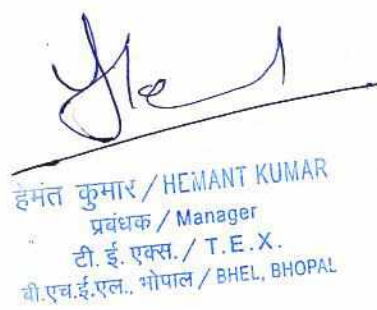 हेमंत कुमार / HEMANT KUMAR
प्रबंधक / Manager
टी. ई. एक्स. / T.E.X.
बी.एच.ई.एल., भोपाल / BHEL, BHOPAL